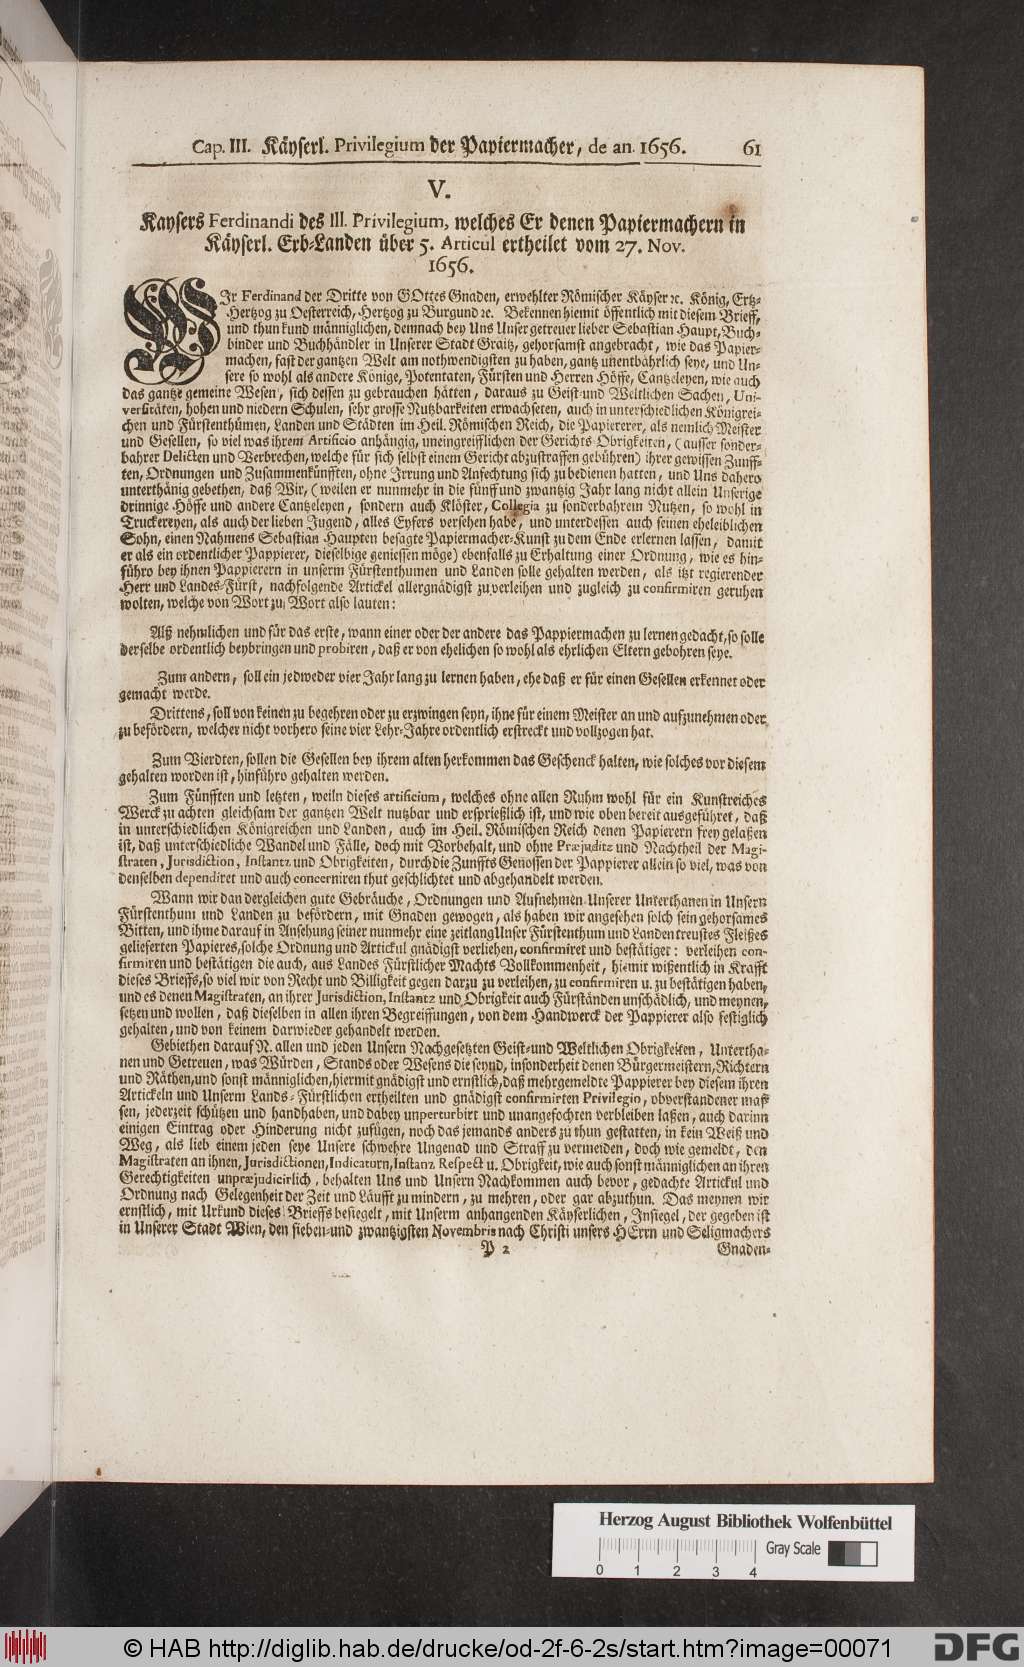 Cap. III. Käyserl. Privilegium der Papiermacher, de an. 1656. 61
V.
Kaysers Ferdinandi des III. Privilegium, welches Er denen Papiermachern in
Käyserl. Erb-Landen über 5. Articul ertheilet vom 27. Nov.
1656.
WIr Ferdinand der Dritte von GOttes Gnaden, erwehlter Römischer Käyser ꝛc. König, Ertz-
Hertzog zu Oesterreich, Hertzog zu Burgund ꝛc. Bekennen hiemit öffentlich mit diesem Brieff,
und thun kund männiglichen, demnach bey Uns Unser getreuer lieber Sebastian Haupt, Buch-
binder und Buchhändler in Unserer Stadt Graitz, gehorsamst angebracht, wie das Papier-
machen, fast der gantzen Welt am nothwendigsten zu haben, gantz unentbährlich seye, und Un-
sere so wohl als andere Könige, Potentaten, Fürsten und Herren Höffe, Cantzeleyen, wie auch
das gantze gemeine Wesen, sich dessen zu gebrauchen hätten, daraus zu Geist-und Weltlichen Sachen, Uni-
versitäten, hohen und niedern Schulen, sehr grosse Nutzbarkeiten erwachseten, auch in unterschiedlichen Königrei-
chen und Fürstenthümen, Landen und Städten im Heil. Römischen Reich, die Papiererer, als nemlich Meister
und Gesellen, so viel was ihrem Artificio anhängig, uneingreifflichen der Gerichts-Obrigkeiten, (ausser sonder-
bahrer Delicten und Verbrechen, welche für sich selbst einem Gericht abzustraffen gebühren) ihrer gewissen Zunff-
ten, Ordnungen und Zusammenkünfften, ohne Irrung und Anfechtung sich zu bedienen hatten, und Uns dahero
unterthänig gebethen, daß Wir, (weilen er nunmehr in die fünff und zwantzig Jahr lang nicht allein Unserige
drinnige Höffe und andere Cantzeleyen, sondern auch Klöster, Collegia zu sonderbahrem Nutzen, so wohl in
Truckereyen, als auch der lieben Jugend, alles Eyfers versehen habe, und unterdessen auch seinen eheleiblichen
Sohn, einen Nahmens Sebastian Haupten besagte Papiermacher-Kunst zu dem Ende erlernen lassen, damit
er als ein ordentlicher Pappierer, dieselbige geniessen möge) ebenfalls zu Erhaltung einer Ordnung, wie es hin-
führo bey ihnen Pappierern in unserm Fürstenthumen und Landen solle gehalten werden, als itzt regierender
Herr und Landes-Fürst, nachfolgende Artickel allergnädigst zu verleihen und zugleich zu confirmiren geruhen
wolten, welche von Wort zu Wort also lauten:
Alß nehmlichen und für das erste, wann einer oder der andere das Pappiermachen zu lernen gedacht, so solle
derselbe ordentlich beybringen und probiren, daß er von ehelichen so wohl als ehrlichen Eltern gebohren seye.
Zum andern, soll ein jedweder vier Jahr lang zu lernen haben, ehe daß er für einen Gesellen erkennet oder
gemacht werde.
Drittens, soll von keinen zu begehren oder zu erzwingen seyn, ihne für einem Meister an und aufzunehmen oder
zu befördern, welcher nicht vorhero seine vier Lehr-Jahre ordentlich erstreckt und vollzogen hat.
Zum Vierdten, sollen die Gesellen bey ihrem alten herkommen das Geschenck halten, wie solches vor diesem
gehalten worden ist, hinführo gehalten werden.
Zum Fünfften und letzten, weiln dieses artificium, welches ohne allen Ruhm wohl für ein Kunstreiches
Werck zu achten gleichsam der gantzen Welt nutzbar und ersprießlich ist, und wie oben bereit ausgeführet, daß
in unterschiedlichen Königreichen und Landen, auch im Heil. Römischen Reich denen Papierern frey gelaßen
ist, daß unterschiedliche Wandel und Fälle, doch mit Vorbehalt, und ohne Præjuditz und Nachtheil der Magi-
straten, Jurisdiction, Instantz und Obrigkeiten, durch die Zunffts Genossen der Pappierer allein so viel, was von
denselben dependiret und auch concerniren thut geschlichtet und abgehandelt werden.
Wann wir dan dergleichen gute Gebräuche, Ordnungen und Aufnehmen Unserer Unterthanen in Unsern
Fürstenthum und Landen zu befördern, mit Gnaden gewogen, als haben wir angesehen solch sein gehorsames
Bitten, und ihme darauf in Ansehung seiner nunmehr eine zeitlang Unser Fürstenthum und Landen treustes Fleißes
gelieferten Papieres, solche Ordnung und Artickul gnädigst verliehen, confirmiret und bestätiget: verleihen con-
firmiren und bestätigen die auch, aus Landes Fürstlicher Machts Vollkommenheit, hiemit wißentlich in Krafft
dieses Brieffs, so viel wir von Recht und Billigkeit gegen darzu zu verleihen, zu confirmiren u. zu bestätigen haben,
und es denen Magistraten, an ihrer Jurisdiction, Instantz und Obrigkeit auch Fürständen unschädlich, und meynen,
setzen und wollen, daß dieselben in allen ihren Begreiffungen, von dem Handwerck der Pappierer also festiglich
gehalten, und von keinem darwieder gehandelt werden.
Gebiethen darauf N. allen und jeden Unsern Nachgesetzten Geist-und Weltlichen Obrigkeiten, Untertha-
nen und Getreuen, was Würden, Stands oder Wesens die seynd, insonderheit denen Bürgermeistern, Richtern
und Räthen, und sonst männiglichen, hiermit gnädigst und ernstlich, daß mehrgemeldte Pappierer bey diesem ihren
Artickeln und Unserm Lands-Fürstlichen ertheilten und gnädigst confirmirten Privilegio, obverstandener mas-
sen, jederzeit schützen und handhaben, und dabey unperturbirt und unangefochten verbleiben laßen, auch darinn
einigen Eintrag oder Hinderung nicht zufügen, noch das jemands anders zu thun gestatten, in kein Weiß und
Weg, als lieb einem jeden seye Unsere schwehre Ungenad und Straff zu vermeiden, doch wie gemeldt, den
Magistraten an ihnen, Jurisdictionen, Indicaturn, Instanz Respect u. Obrigkeit, wie auch sonst männiglichen an ihren
Gerechtigkeiten unpræjudicirlich, behalten Uns und Unsern Nachkommen auch bevor, gedachte Artickul und
Ordnung nach Gelegenheit der Zeit und Läufft zu mindern, zu mehren, oder gar abzuthun. Das meynen wir
ernstlich, mit Urkund dieses Brieffs besiegelt, mit Unserm anhangenden Käyserlichen, Insiegel, der gegeben ist
in Unserer Stadt Wien, den sieben-und zwantzigsten Novembris nach Christi unsers HErrn und Seligmachers
P 2 Gnaden-
Herzog August Bibliothek Wolfenbüttel
Gray Scale
0 1 2 3 4
© HAB http://diglib.hab.de/drucke/od-2f-6-2s/start.htm?image=00071
DFG